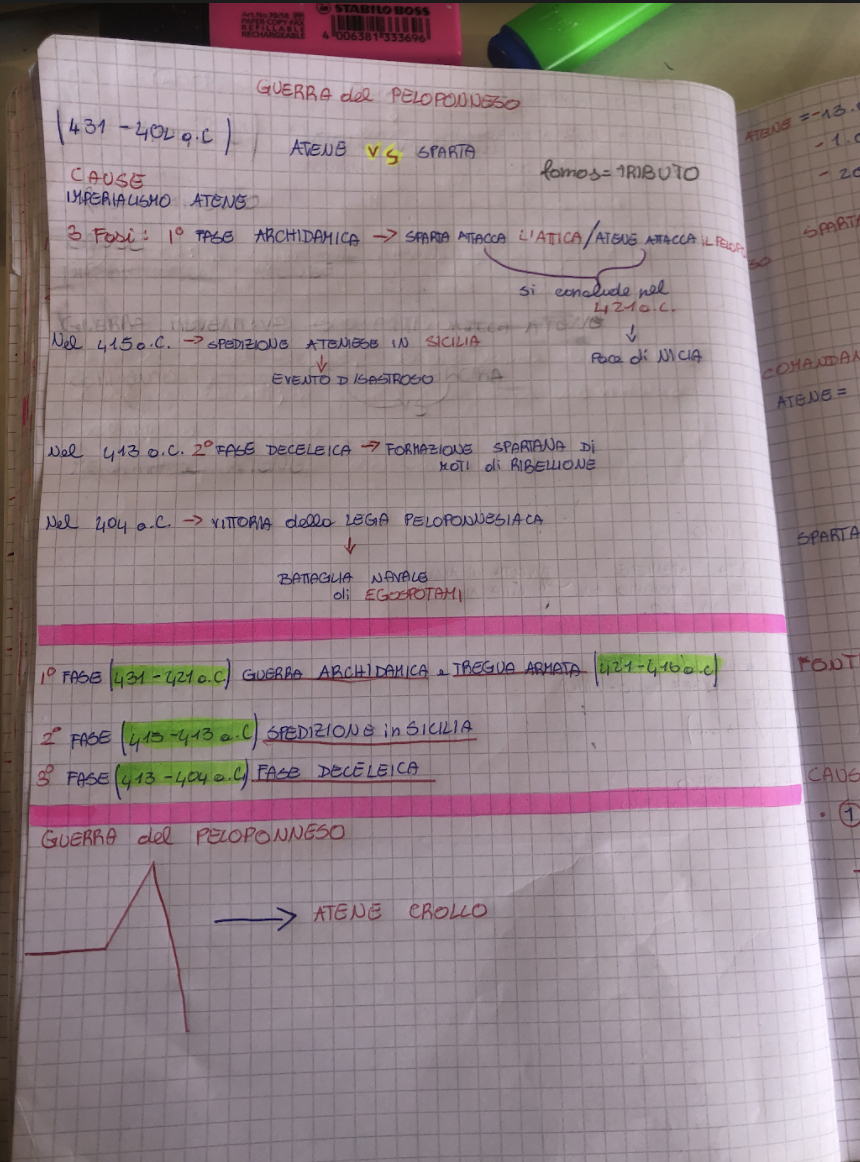 Art.No.70/56
PAPER-COPY-FAX
REFILLABLE
RECHARGEABLE
STABILO BOSS
4 006381 333696
GUERRA del PELOPONNESO
(431 - 404 a.C)
ATENE VS SPARTA
fomos = TRIBUTO
CAUSE
IMPERIALISMO ATENE
3 Fasi: 1° FASE ARCHIDAMICA → SPARTA ATTACCA L'ATICA / ATENE ATTACCA IL PELOPONNESO
si conclude nel
421 a.C.
↓
Pace di NICIA
Nel 415 a.C. → SPEDIZIONE ATENIESE IN SICILIA
↓
EVENTO DISASTROSO
Nel 413 a.C. 2° FASE DECELEICA → FORMAZIONE SPARTANA DI
MOTI di RIBELLIONE
Nel 404 a.C. → VITTORIA della LEGA PELOPONNESIACA
↓
BATTAGLIA NAVALE
di EGOSPOTAMI
1° FASE (431-421 a.C) GUERRA ARCHIDAMICA e TREGUA ARMATA (421-416 a.C)
2° FASE (415-413 a.C) SPEDIZIONE in SICILIA
3° FASE (413-404 a.C) FASE DECELEICA
GUERRA del PELOPONNESO
→ ATENE CROLLO
ATENE =
SPARTA
ATENE =
SPARTA
1